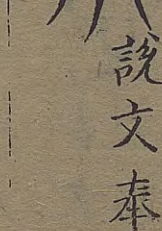 說文奉